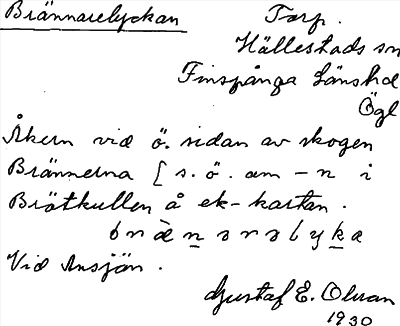 Brännarelyckan Torp.
Hällestads sn
Finspånga länshd
Ögl
Åkern vid ö. sidan av skogen
Brännerna [s. ö. om -n i
Brötkullen å ek-kartan.
brὰnaralyka
Vid Ansjön.
Gustaf E. Olsson
1930